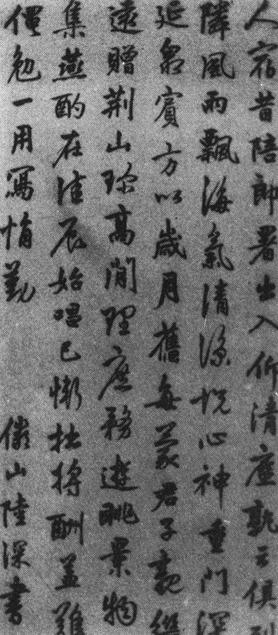 人宿昔陪郎署出入仰清尘孰云俱列
隣風雨飄海氣清涼悦心神重門深
延衆賓方以歲月舊每蒙君子親繼
遠贈荆山珍高閒理庶務遊眺景物
集燕酌在佳辰始唱已慚拙將酬益難
僶勉一用寫悁勤 儼山陸深書